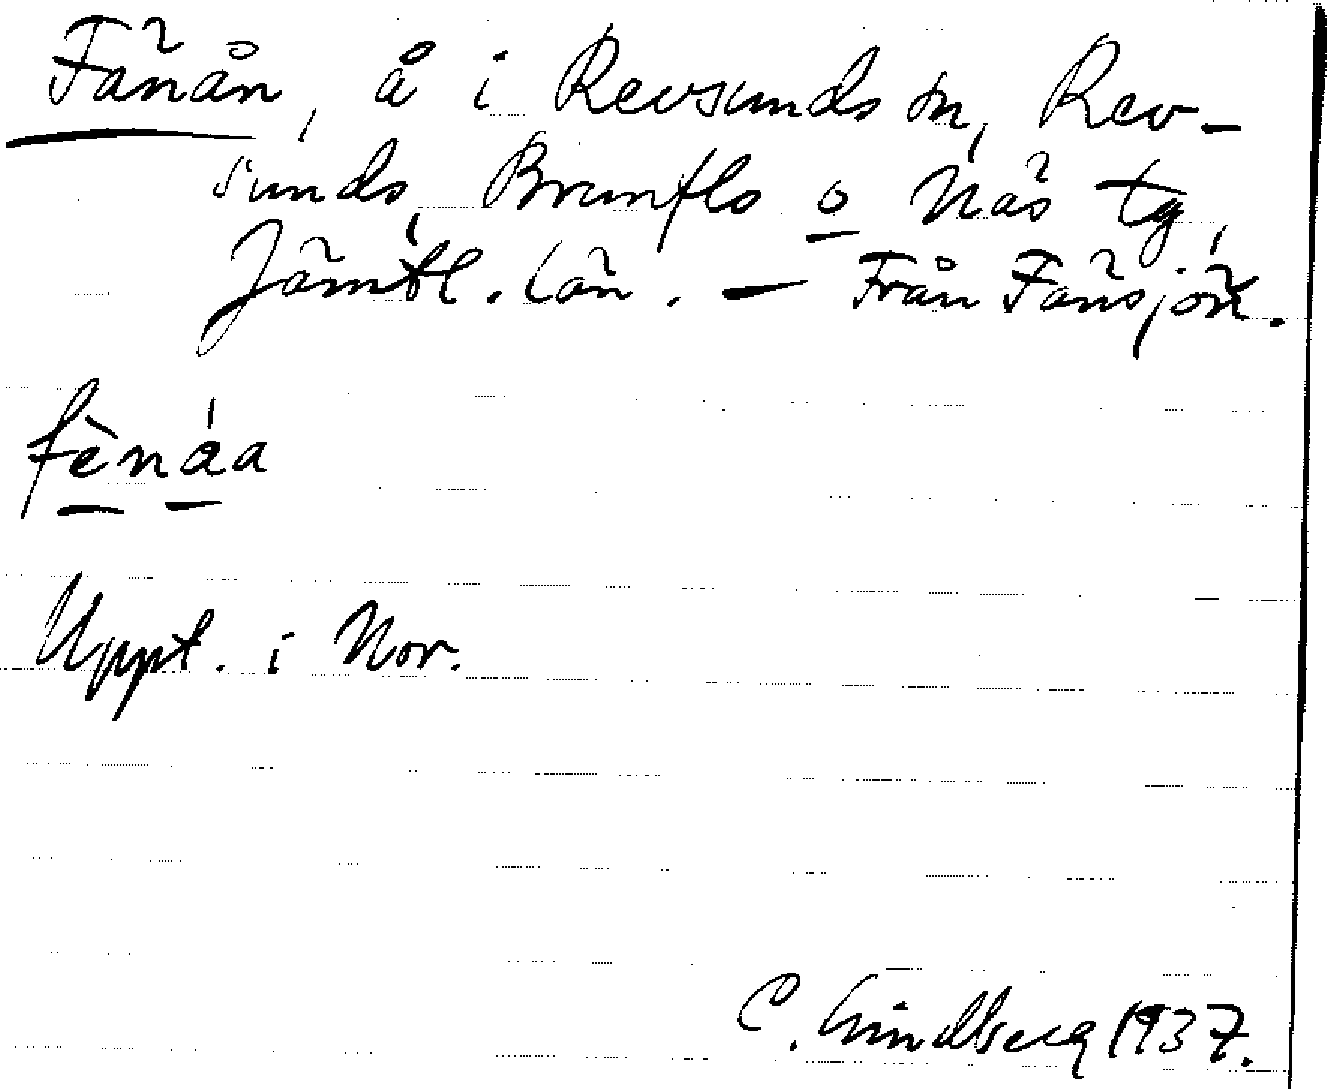 Fänån, å i Revsunds sn, Rev-
sunds, Brunflo o Näs tg,
Jämtl. län. — Från Fänsjön.
fènáa
Uppt. i Nor.
C. Lindberg 1937.